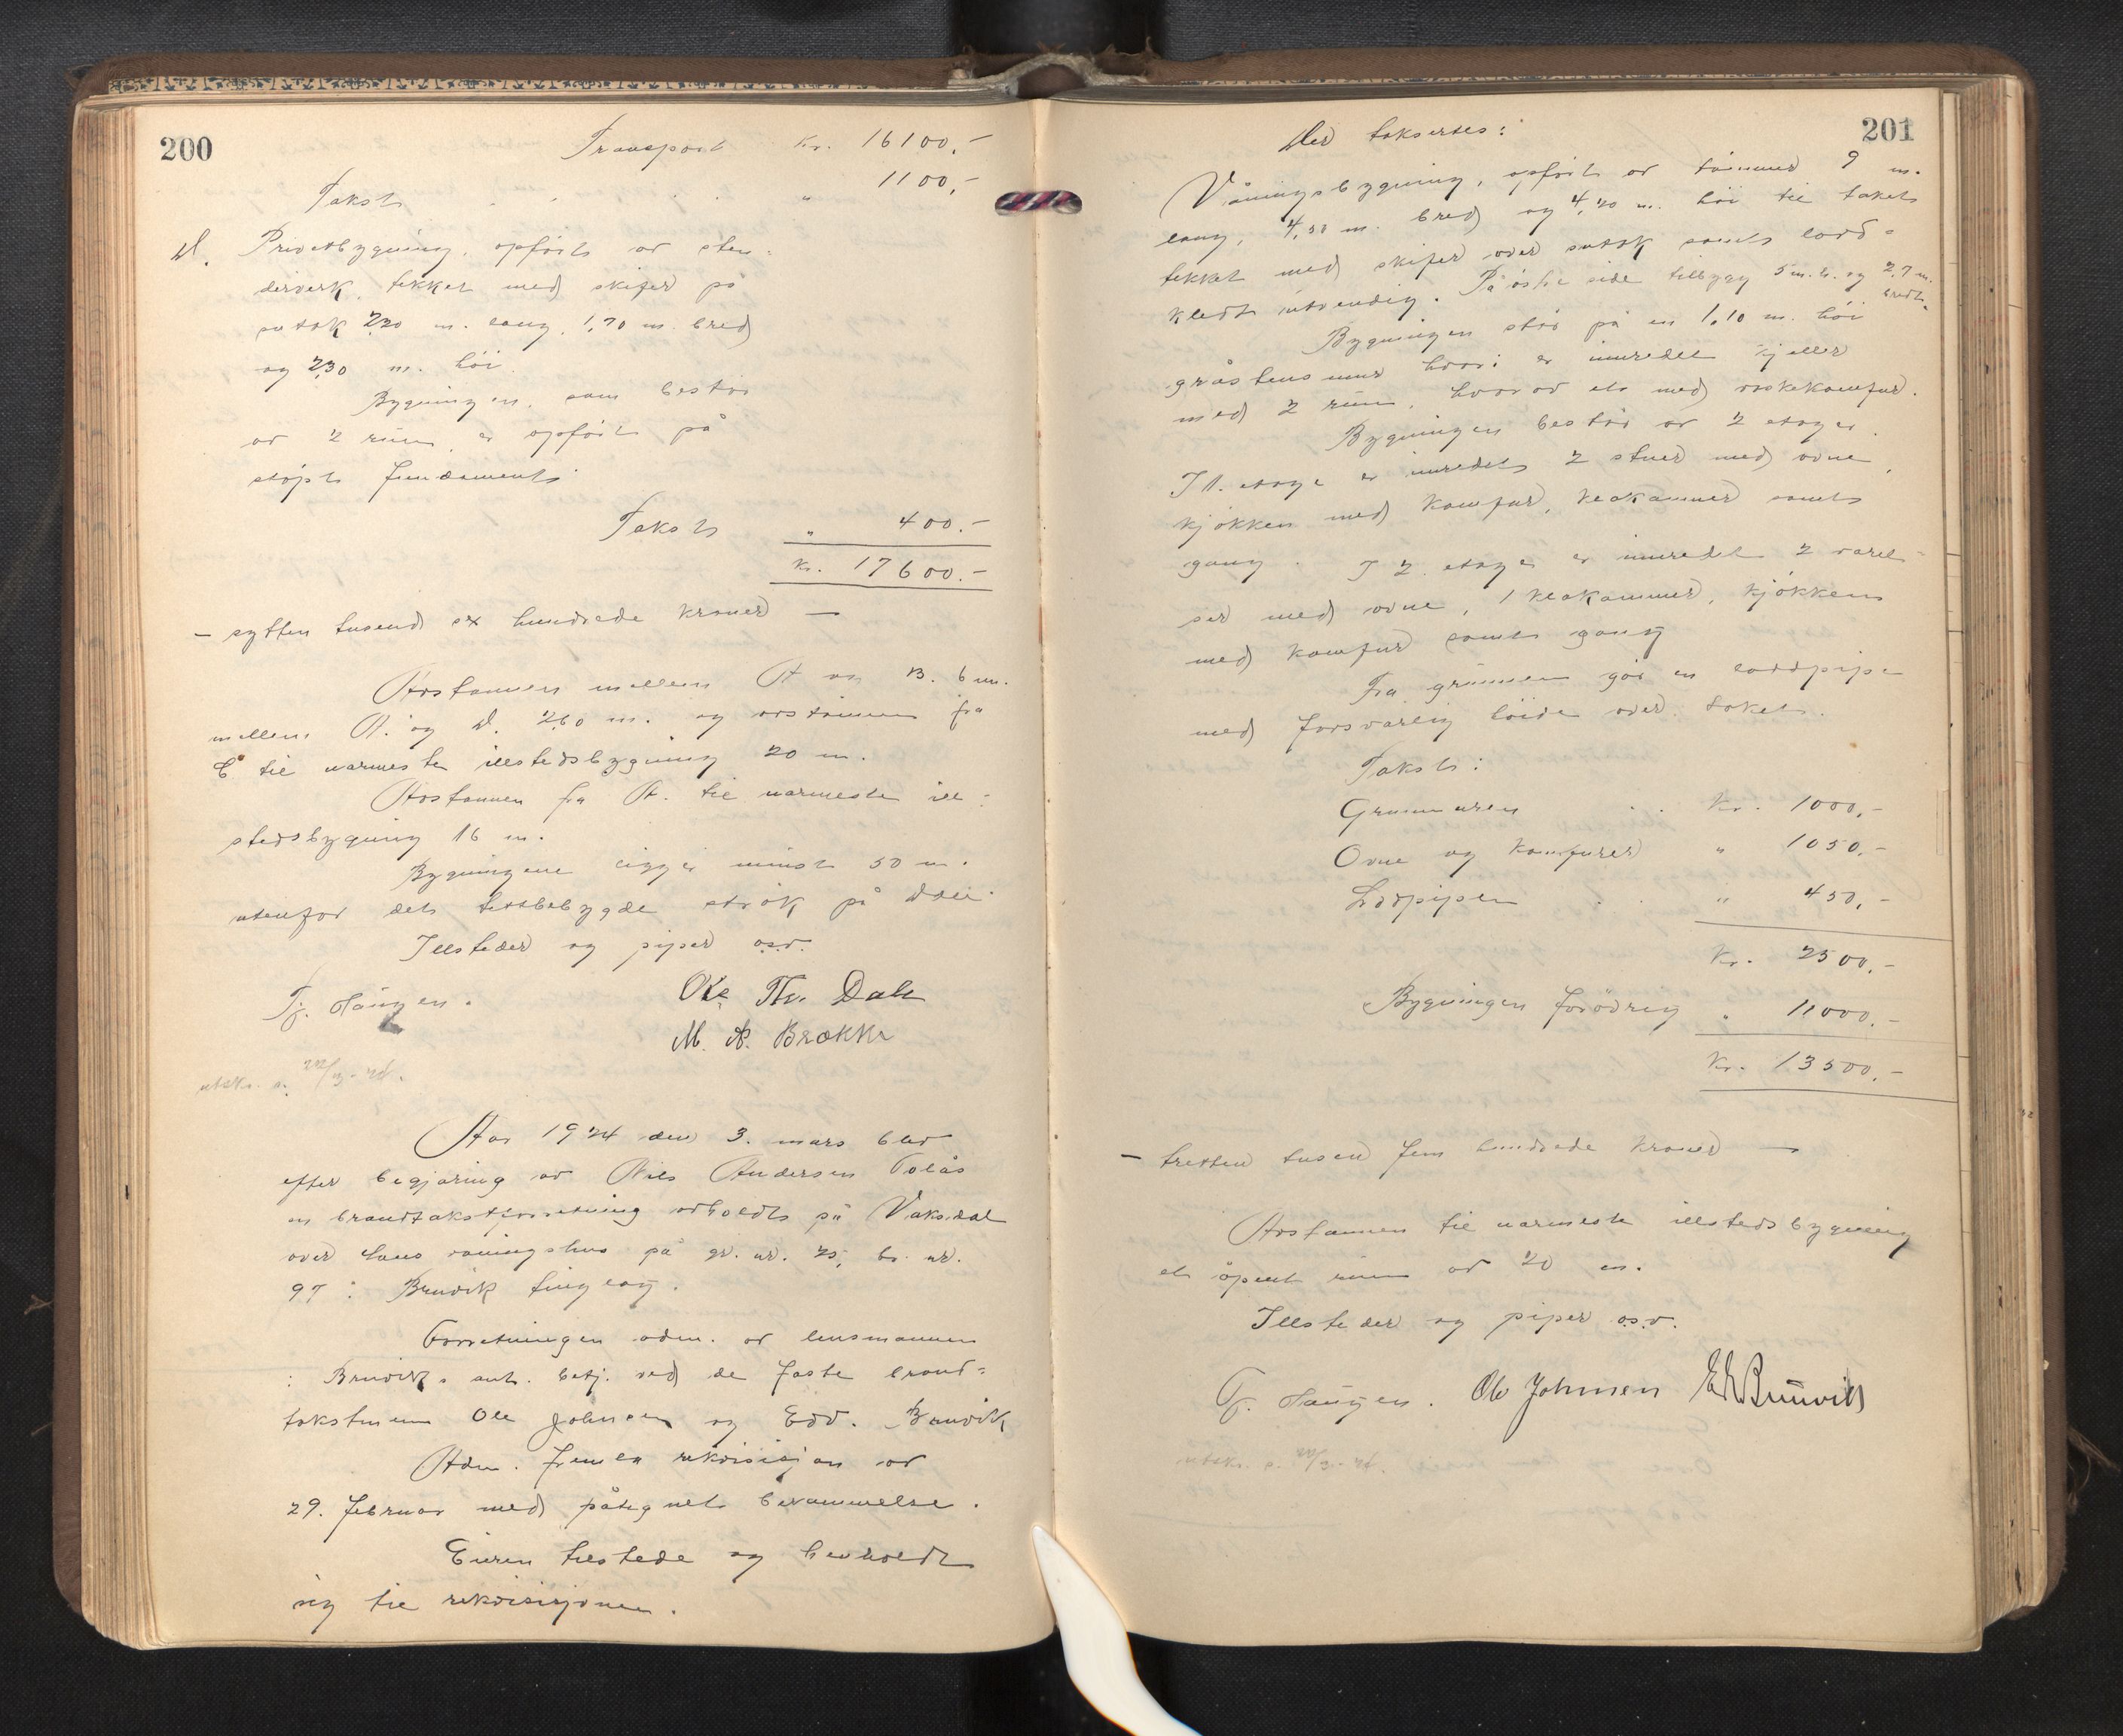 200
Transport Kr. 16100,-
Takst " 1100,-
D. Privetbygning, opført av sten-
derverk, tekket med skifer på
sutak 2,20 m. lang, 1,70 m. bred
og 2,30 m. høi.
Bygningen, som består
av 2 rum, er opført på
støpt fundament.
Takst " 400.-
Kr. 17600.-
- sytten tusend sex hundrede kroner -
Avstannen mellem A og B. 6 m.
mellem A. og D. 2,60 m. og avstannen fra
C til nærmeste illstedsbygning 20 m.
Avstannen fra A. til nærmeste ill-
stedsbygning 16 m.
Bygningene ligger minst 50 m.
utenfor det tettbebygde strøk på Dale.
Illsteder og piper o.s.v.
Tj. Haugen. Ole Th. Dale
M. A. Brække
utskr. s. 22/3-24.
Aar 1924 den 3. mars blev
efter begjæring av Nils Andersen Tolås
en brandtakstforretning avholdt på Vaksdal
over hans våningshus på gr. nr. 25, br. nr.
97 i Bruvik tinglag.
Forretningen adm. av lensmannen
i Bruvik s aut. betj. ved de faste brand-
takstmenn Ole Johnsen og Edv. Bruvik
Adm. fremla rekvisisjon av
29. februar med påtegnet berammelse.
Eieren tilstede og henholdt
sig til rekvisisjonen.
201
Der takseres:
Våningsbygning, opført av tømmer 9 m.
lang, 4,50 m. bred og 4,20 m. høi til taket
tekket med skifer over sutak samt bord-
kledt utvendig. På østre side tilbygg 5 m. l. og 2,7 m.
bredt.
Bygningen står på en 1,10 m. høi
gråstensmur hvori er innredet kjeller
med 2 rum, hvorav et med vaskekomfur.
Bygningen består av 2 etager.
I 1. etage er innredet 2 stuer med ovne,
kjøkken med komfur, kleskammer samt
gang. I 2. etage er innredet 2 værel-
ser med ovne, 1 kleskammer, kjøkken
med komfur samt gang
Fra grunnen går en loddpipe
med forsvarlig høide over taket.
Takst:
Grunnmuren Kr. 1000,-
Ovne og komfurer " 1050.-
Lodpipen " 450,-
Kr. 2500,-
Bygningen forøvrig " 11000,-
Kr. 13500,-
- tretten tusen fem hundrede kroner -
Avstannen til nærmeste illstedsbygning
et åpent rum av 20 m.
Illsteder og piper o.s.v.
Tj. Haugen. Ole Johnsen Edv Bruvik
utskr. s. 22/3-24.